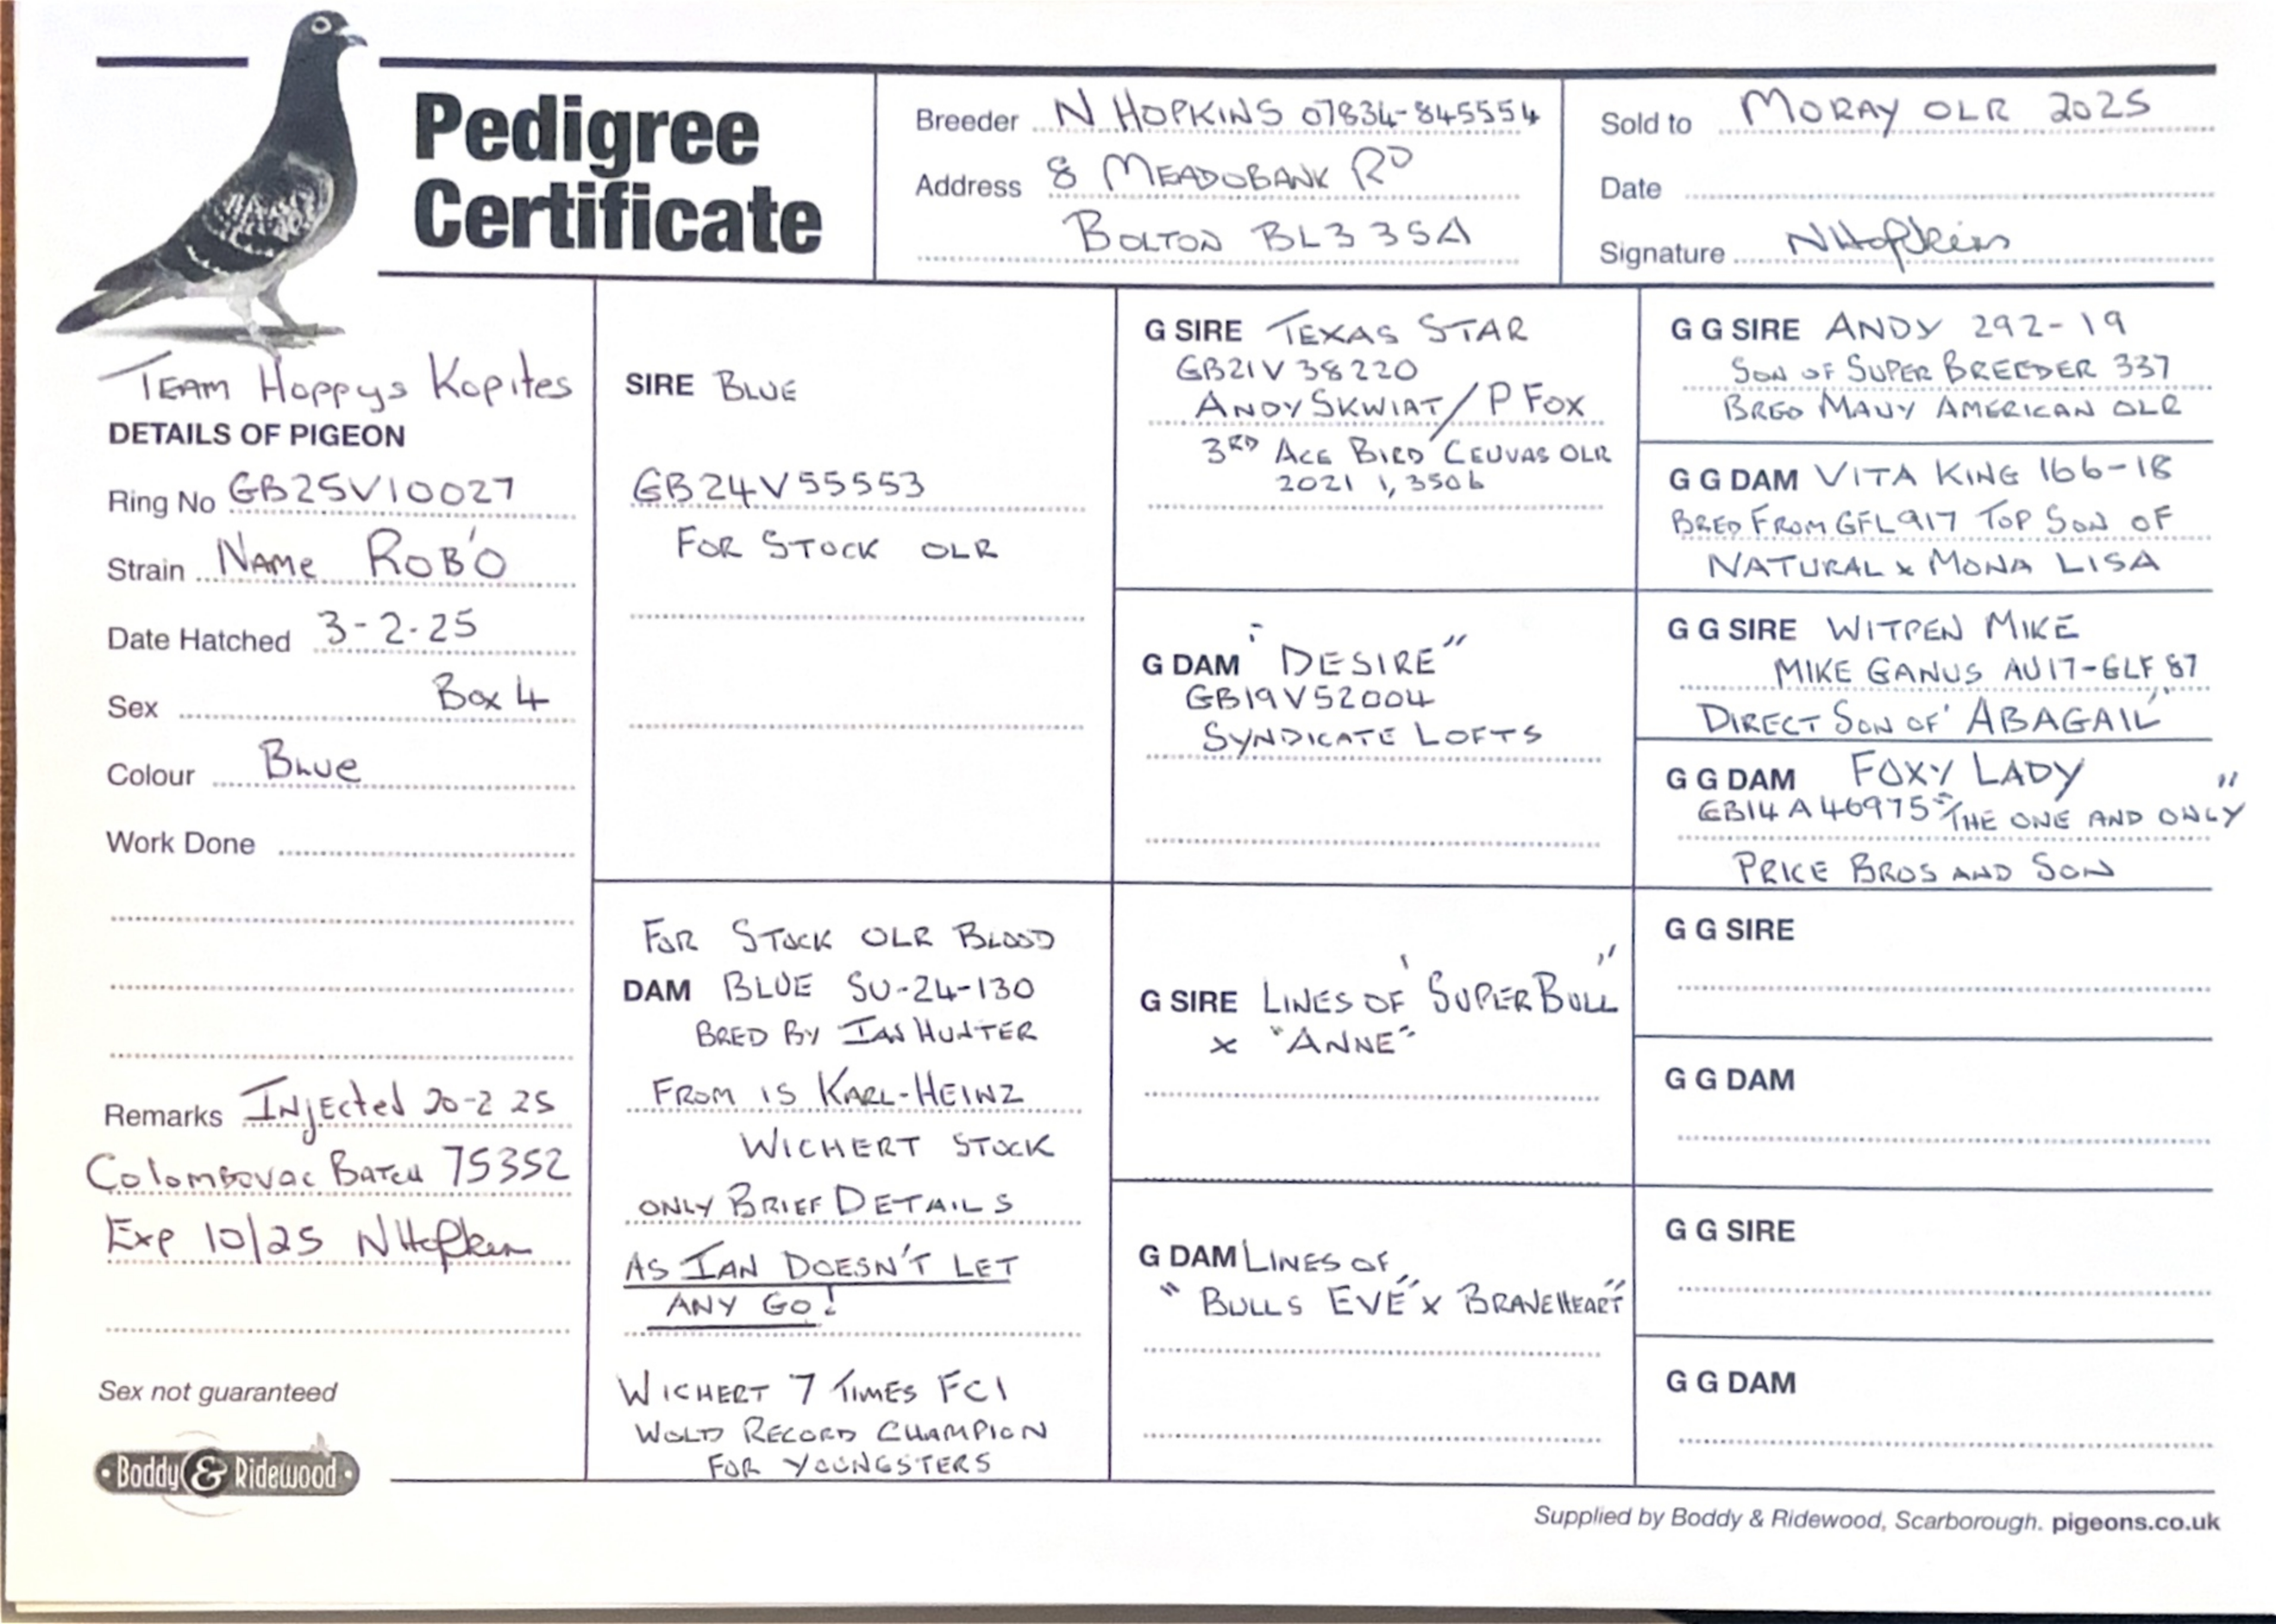 Pedigree
Certificate
Breeder N HOPKINS 07834-845554
Address 8 MEADOBANK RD
BOLTON BL3 3SA
Sold to MORAY OLR 2025
Date
Signature NHopkins
TEAM Hoppys Kopites
DETAILS OF PIGEON
Ring No GB25V10027
Strain NAME ROB'O
Date Hatched 3-2-25
Sex Box 4
Colour BLUE
Work Done
Remarks INJECTED 20-2 25
Colombovac BATCH 75352
Exp 10/25 NHopkins
Sex not guaranteed
Boddy & Ridewood
SIRE BLUE
GB24V55553
FOR STOCK OLR
FOR STOCK OLR BLOOD
DAM BLUE SU-24-130
BRED BY IAN HUNTER
FROM IS KARL-HEINZ
WICHERT STOCK
ONLY BRIEF DETAILS
AS IAN DOESN'T LET
ANY GO!
WICHERT 7 TIMES FCI
WOLD RECORD CHAMPION
FOR YOUNGSTERS
G SIRE TEXAS STAR
GB21V 38220
ANDY SKWIAT / P FOX
3RD ACE BIRD CEUVAS OLR
2021 1,350b
G DAM "DESIRE"
GB19V52004
SYNDICATE LOFTS
G SIRE LINES OF 'SUPER BULL"
x "ANNE"
G DAM LINES OF
"BULLS EVE" x BRAVEHEART"
G G SIRE ANDY 292-19
SON OF SUPER BREEDER 337
BRED MANY AMERICAN OLR
G G DAM VITA KING 166-18
BRED FROM GFL917 TOP SON OF
NATURAL x MONA LISA
G G SIRE WITPEN MIKE
MIKE GANUS AU17-GLF 87
DIRECT SON OF 'ABAGAIL"
G G DAM FOXY LADY
GB14A46975 "THE ONE AND ONLY"
PRICE BROS AND SON
G G SIRE
G G DAM
G G SIRE
G G DAM
Supplied by Boddy & Ridewood, Scarborough. pigeons.co.uk